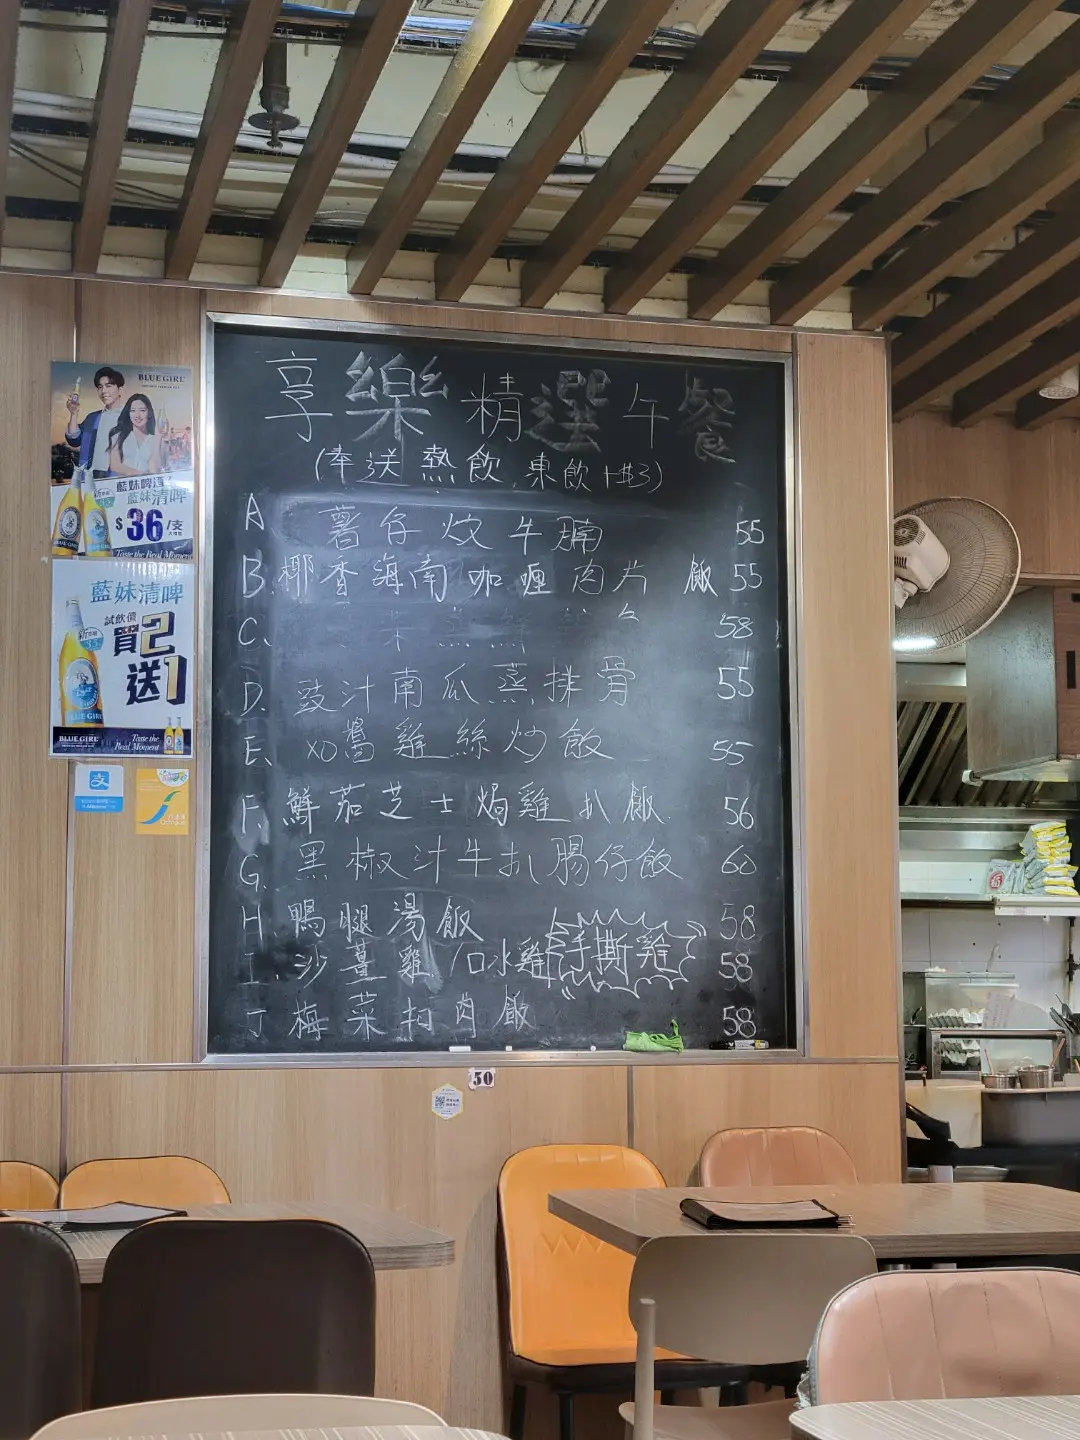 享樂精選午餐
(奉送熱飲,東飲+$3)
A 薯仔炆牛腩 55
B. 椰香海南咖喱肉片飯 55
C. 58
D. 豉汁南瓜蒸排骨 55
E. XO醬雞絲炒飯 55
F. 鮮茄芝士焗雞扒飯 56
G. 黑椒汁牛扒腸仔飯 60
H. 鴨腿湯飯 58
I. 沙薑雞/口水雞 手撕雞 58
J 梅菜扣肉飯 58
BLUE GIRL
藍妹啤酒
藍妹清啤
$36/支
Taste the Real Moment
藍妹清啤
試飲價
買2
送1
BLUE GIRL
BLUE GIRL
Taste the
Real Moment
支
50